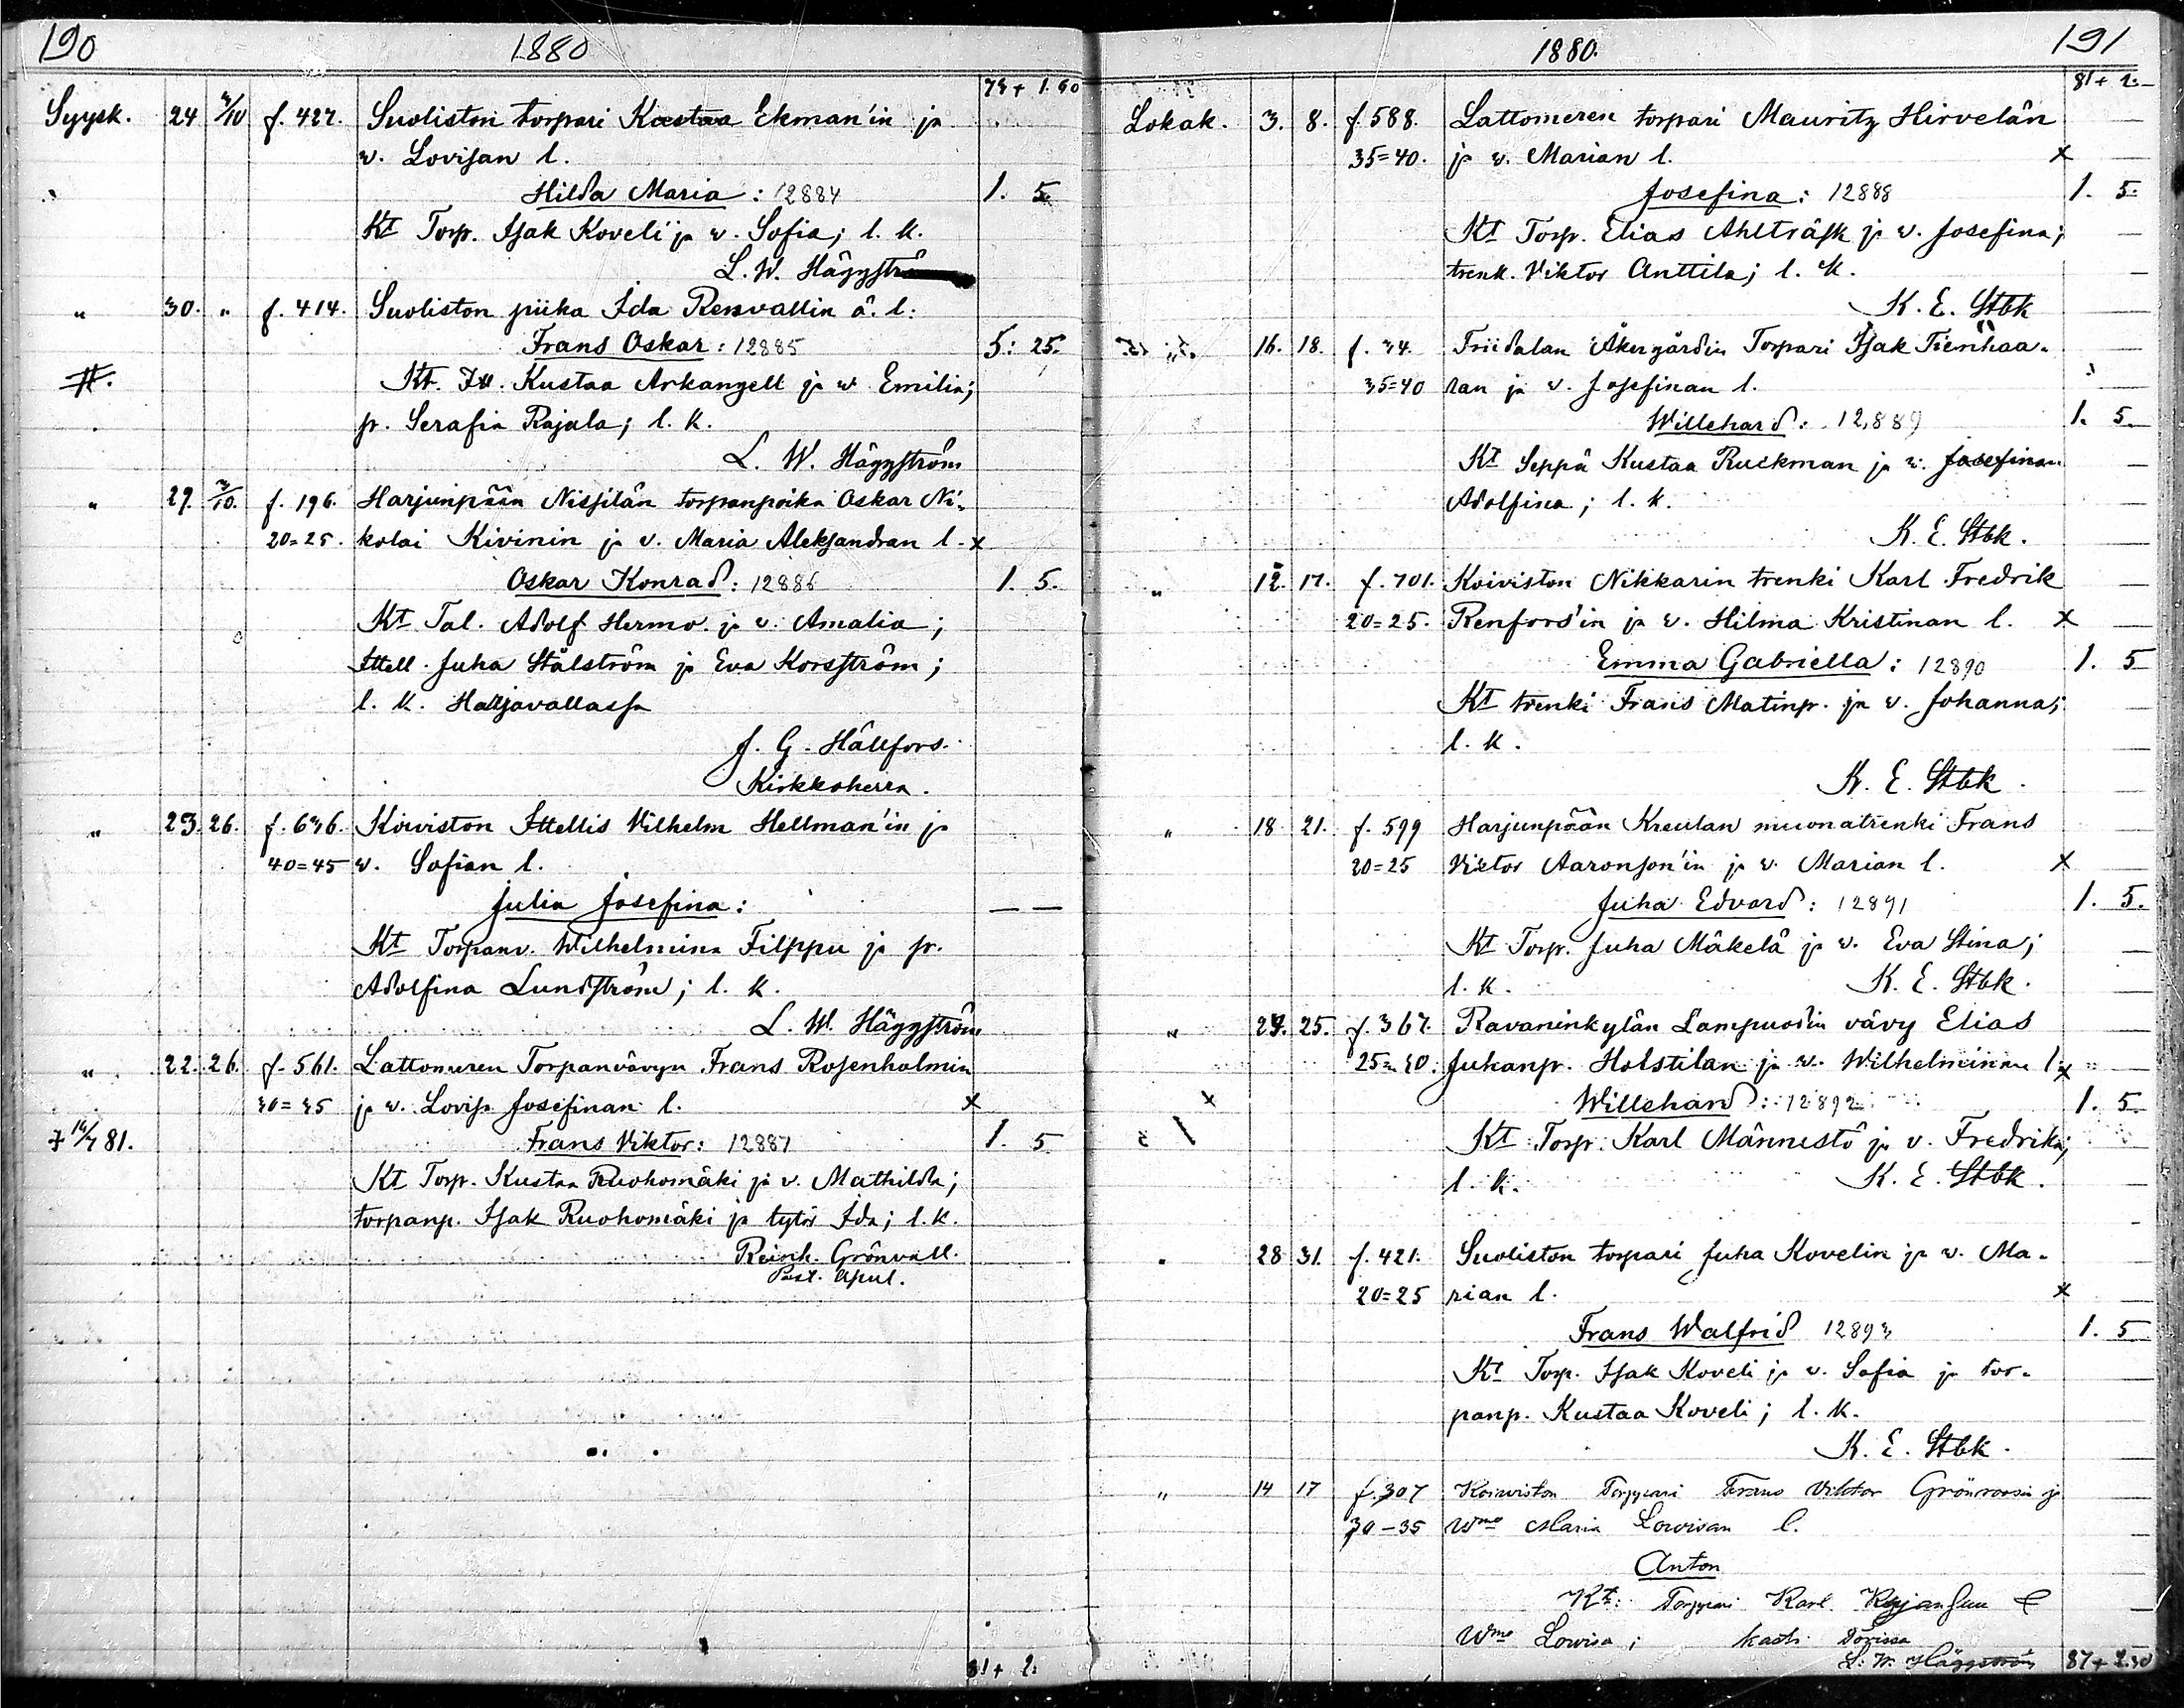 190
1880
73+ 1.60
Syysk. 24 3/10 f. 427. Suoliston torpari Kustaa Ekman'in ja
v. Lovisan l.
Hilda Maria: 12884 1. 5.
Kt Torp. Isak Koveli ja v. Sofia; l. k.
L. W. Häggström
" 30. " f. 414. Suoliston piika Ida Rensvallin ä. l:
Frans Oskar: 12885 5: 25.
Kt. Kustaa Arkangell ja v Emilia;
p. Serafia Rajala; l. k.
L. W. Häggström
" 29. 3/10. f. 196. Harjunpään Nissilän torpanpoika Oskar Ni-
20=25. kolai Kivinin ja v. Maria Aleksandran l. x
Oskar Konrad: 12886 1. 5.
Kt Tal. Adolf Hermo ja v. Amalia;
Ittell. Juha Stålström ja Eva Korsström;
l. k. Harjavallassa
J. G. Hällfors.
Kirkkoherra.
" 23. 26. f. 636. Koiviston Ittellis Vilhelm Hellman'in ja
40=45 v. Sofian l.
Julia Josefina: — —
Kt Torpanv. Wilhelmina Filppu ja p.
Adolfina Lundström; l. k.
L. W. Häggström
" 22. 26. f. 561. Lattomeren Torpanvävyn Frans Rosenholmin
30=35 ja v. Lovisa Josefinan l. x
† 14/7 81. Frans Viktor: 12887 1. 5
Kt Torp. Kustaa Ruohomäki ja v. Mathilda;
torpanp. Isak Ruohomäki ja tytär Ida; l. k.
Reinh. Grönvall.
Past. Apul.
81+ 2:
1880.
191
81+ 2.-
Lokak. 3. 8. f. 588. Lattomeren torpari Mauritz Hirvelän
35=40. ja v. Marian l. x
Josefina: 12888 1. 5.
Kt Torp. Elias Ahlträsk ja v. Josefina;
trenk. Viktor Anttila; l. k.
K. E. Stbk
" 16. 18. f. 34. Friidalan Åkergårdin Torpari Isak Tienhaa-
35=40 ran ja v. Josefinan l.
Willehard: 12,889 1. 5.
Kt Seppä Kustaa Ruckman ja v. Josefinan
Adolfina; l. k.
K. E. Stbk.
" 12. 17. f. 701. Koiviston Nikkarin trenki Karl Fredrik
20=25. Renfors'in ja v. Hilma Kristinan l. x
Emma Gabriella: 12890 1. 5
Kt trenki Frans Matinp. ja v. Johanna;
l. k.
K. E. Stbk.
" 18 21. f. 599 Harjunpään Kreulan muonatrenki Frans
20=25 Viktor Aaronson'in ja v. Marian l. x
Juha Edvard: 12891 1. 5.
Kt Torp. Juha Mäkelä ja v. Eva Stina;
l. k. K. E. Stbk.
" 24. 25. f. 367. Ravaninkylän Lampuodin vävy Elias
Juhanp. Holstilan ja v. Wilhelminan l. x
x Willehard: 12892 1. 5.
Kt Torp. Karl Männistö ja v. Fredrika;
l. k. K. E. Stbk.
" 28 31. f. 421. Suoliston torpari Juha Kovelin ja v. Ma-
20=25 rian l. x
Frans Walfrid 12893 1. 5
Kt Torp. Isak Koveli ja v. Sofia ja tor-
panp. Kustaa Koveli; l. k.
K. E. Stbk.
" 14 17 f. 307 Koiwiston Torppari Frans Viktor Grönroosin ja
30-35 Wmo Maria Lowisan l.
Anton
Kt: Torppari Karl
Wmo Lowisa; kast:
L. W. Häggström 87+ 2.30